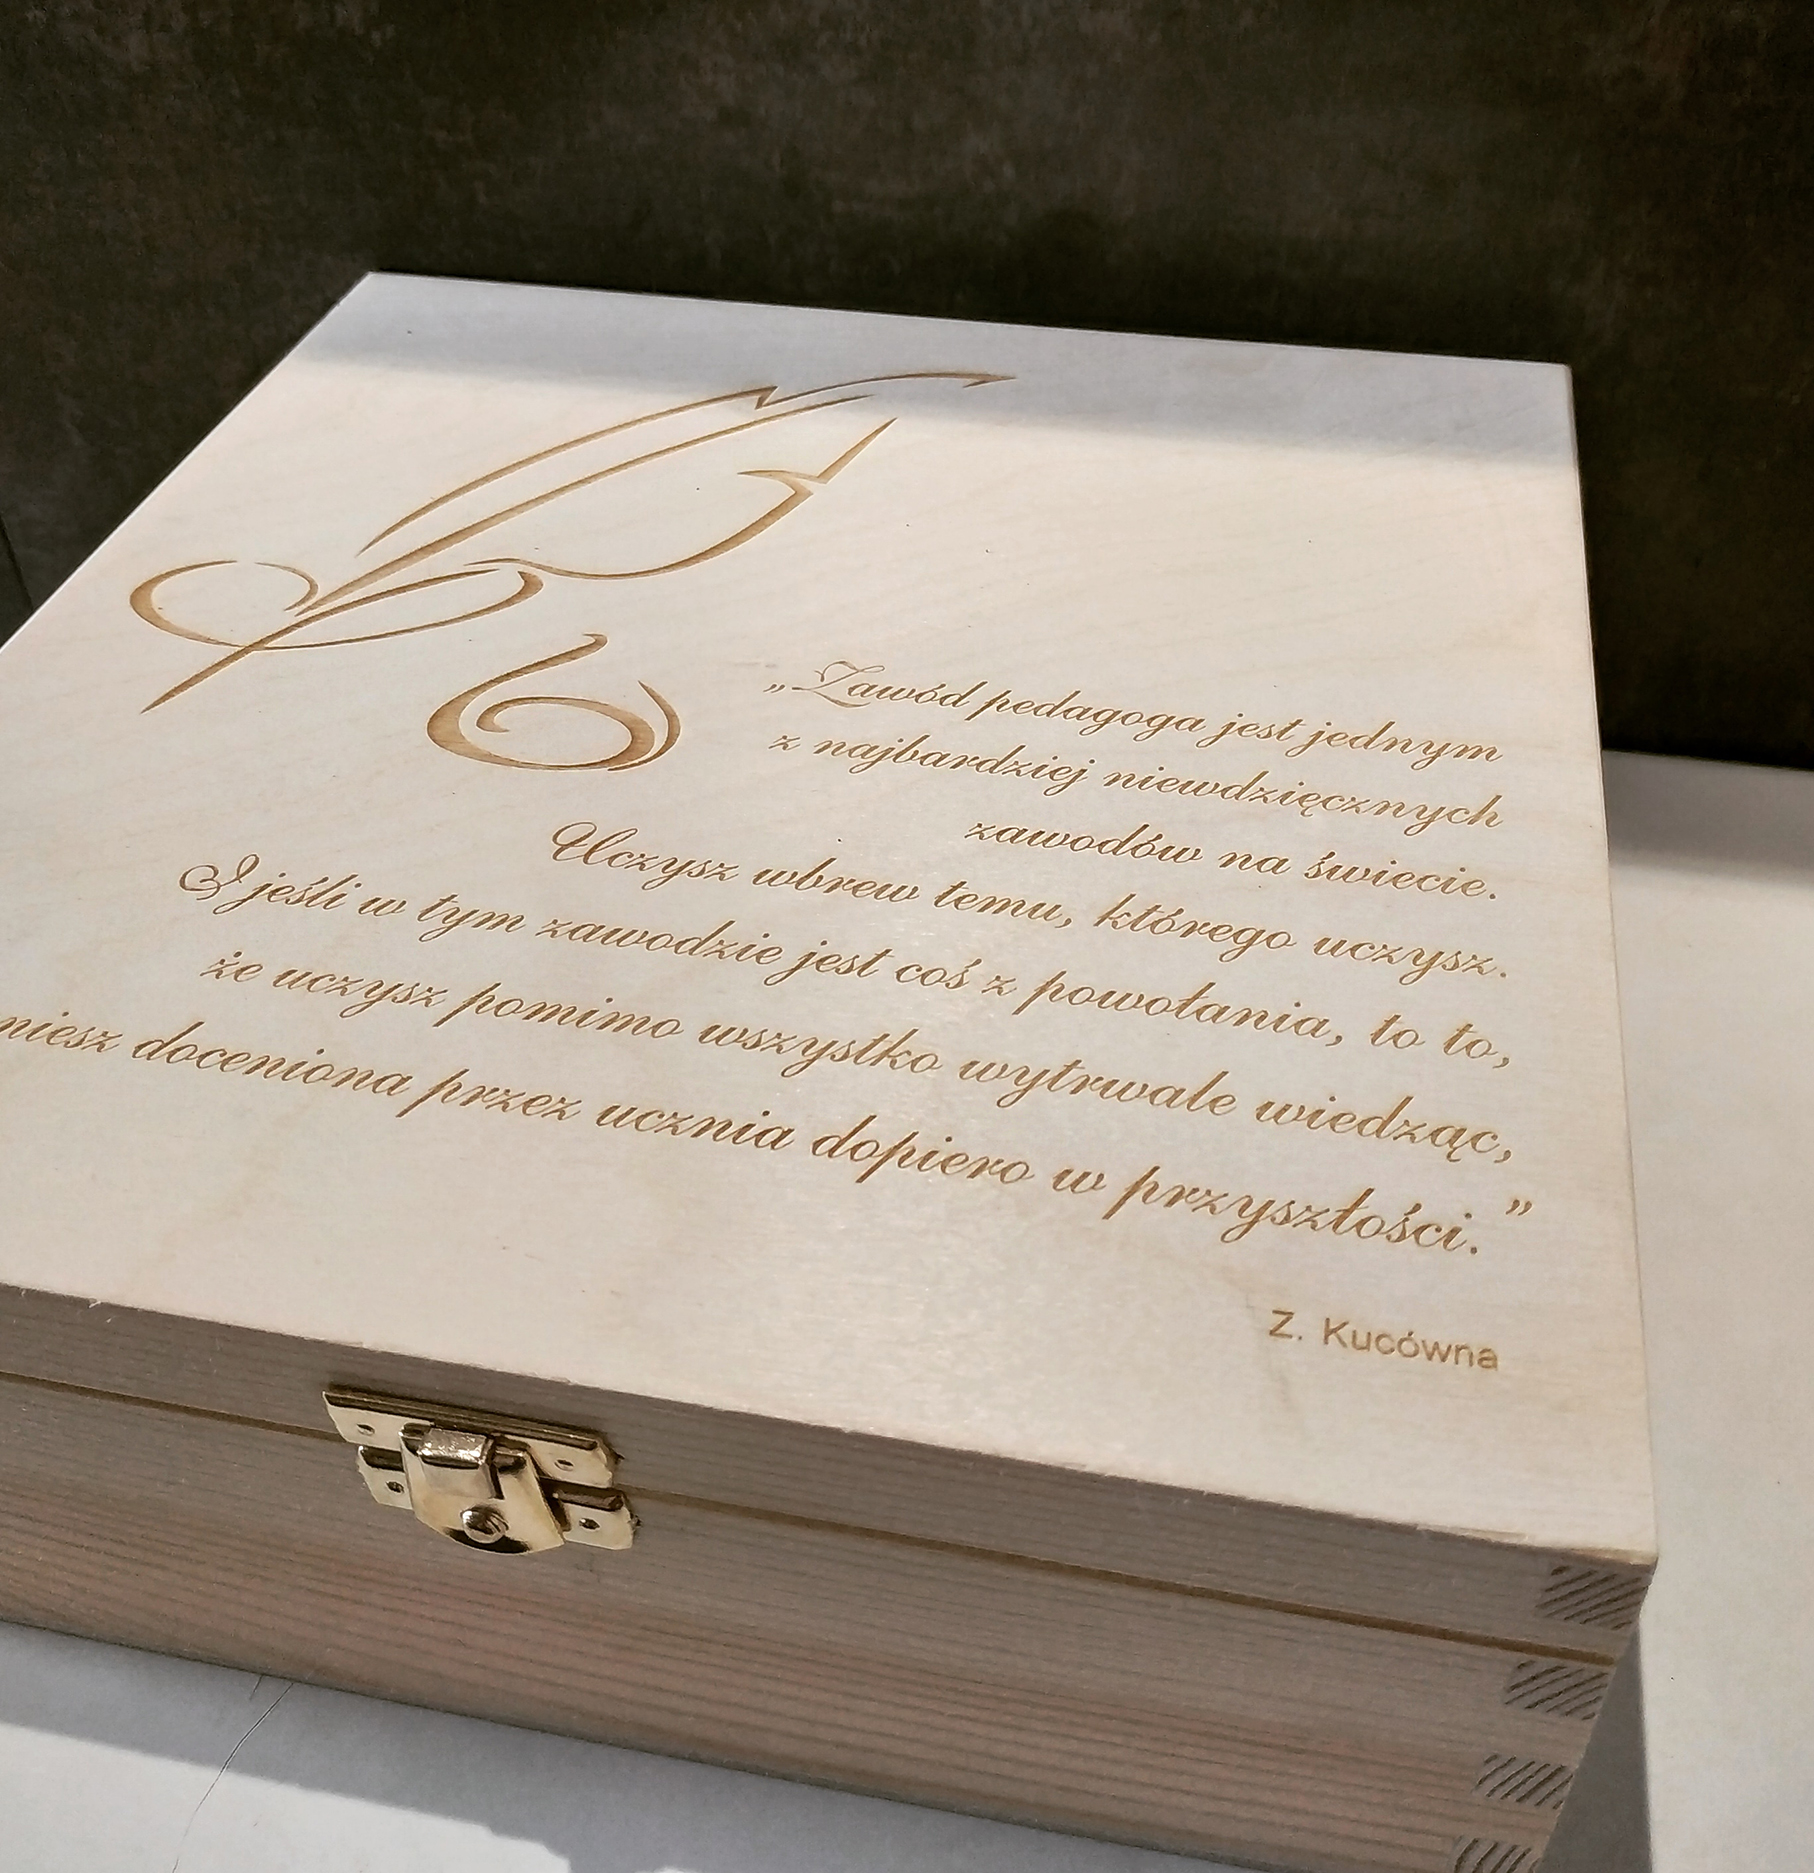 „Zawód pedagoga jest jednym
z najbardziej niewdzięcznych
zawodów na świecie.
Uczysz wbrew temu, którego uczysz.
I jeśli w tym zawodzie jest coś z powołania, to to,
że uczysz pomimo wszystko wytrwale wiedząc,
doceniona przez ucznia dopiero w przyszłości.”
Z. Kucówna